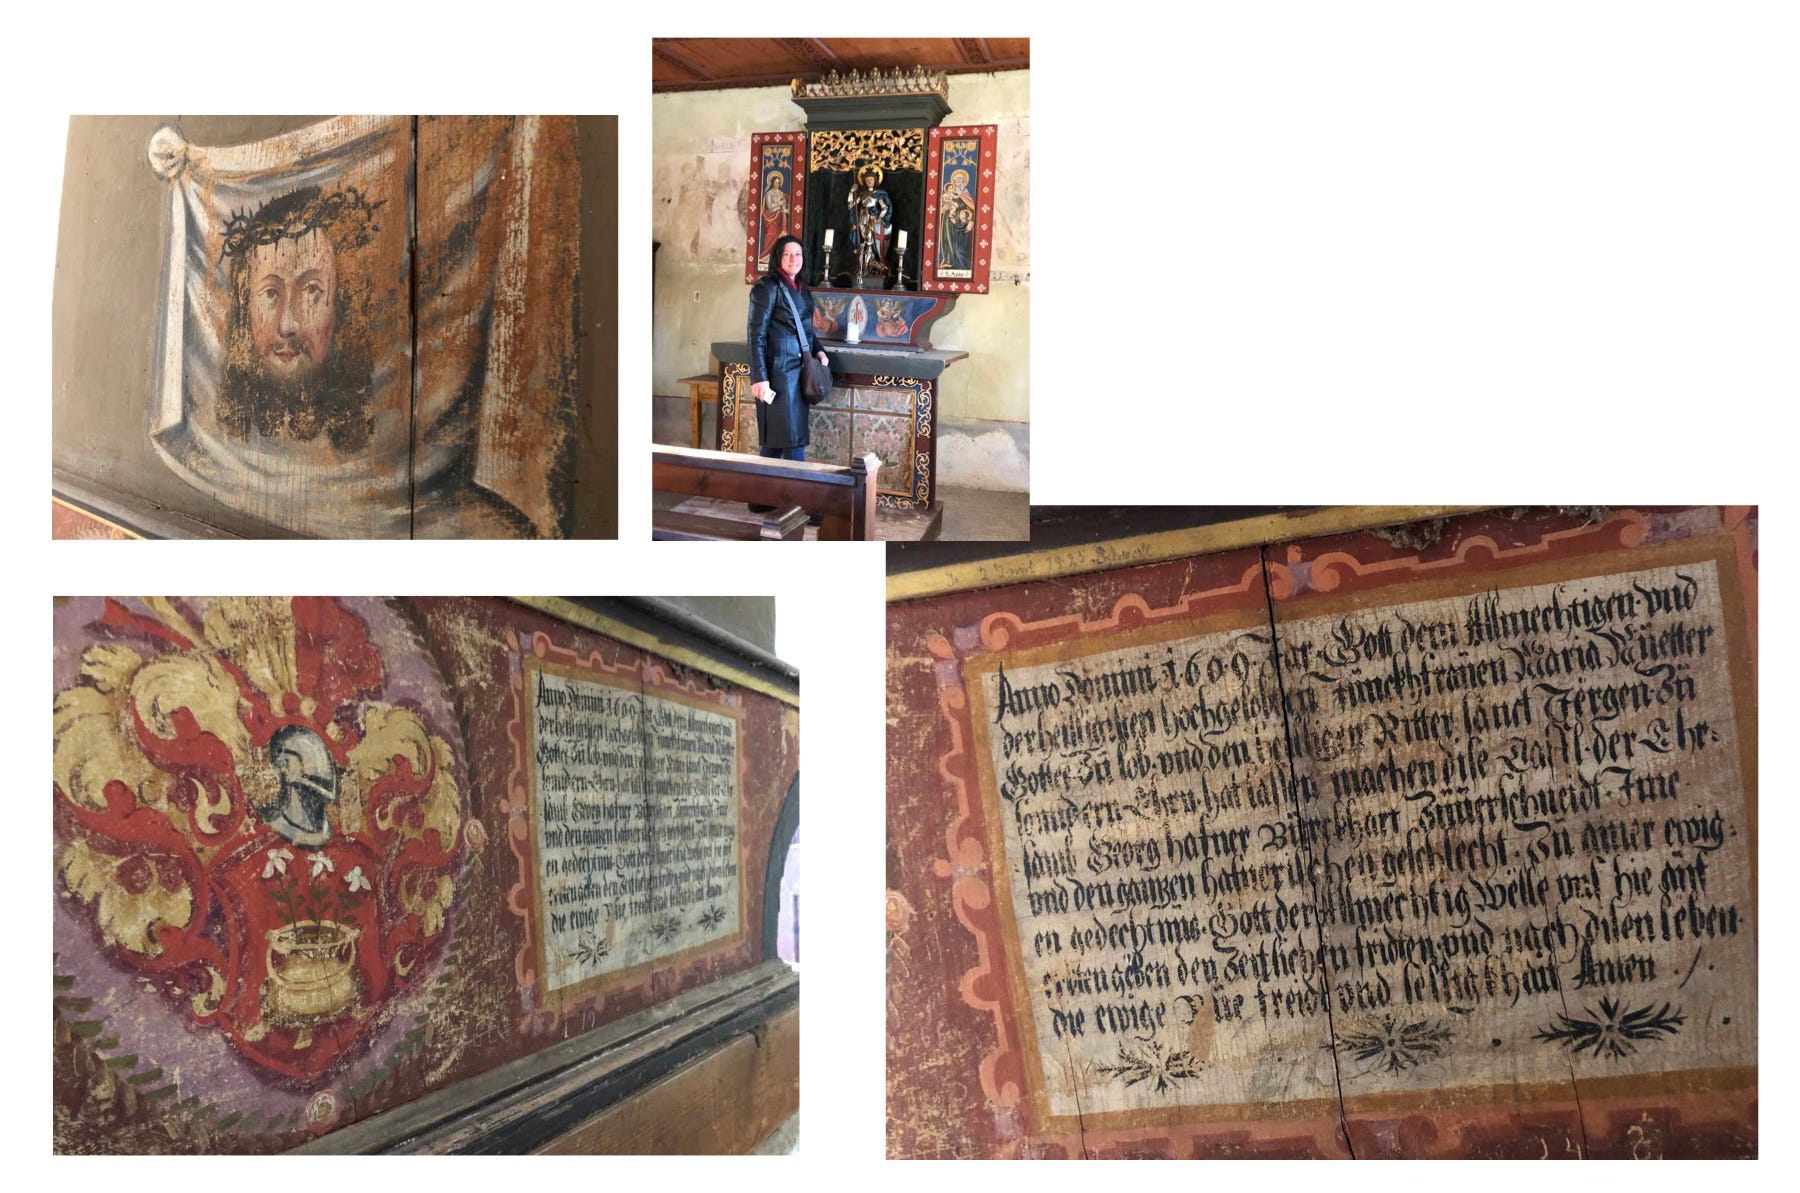 S. Anna
IHS
Anno Domini 1609 Jar Gott dem Allmechtigen und
der heilligisten hochgelobten Junckhfrauen Maria Muetter
Gottes Zu lob und den heilligen Ritter sanct Jergen Zu
sondern Ehen hat lassen machen dise Taffl der Ehr:
samb Georg hafner Burckhart Zuuerschneidt Ime
und den ganzen hafnerischen geschlecht Zu ainer ewig:
en gedechtnus Gott der Allmechtig Welle uns hie auf
erden geben den Zeitlichen friden und nach disen leben
die ewige freidt und selligkhait Amen
Anno Domini 1609 Jar Gott dem Allmechtigen und
der heilligisten hochgelobten Junckhfrauen Maria Muetter
Gottes Zu lob und den heilligen Ritter sanct Jergen Zu
sondern Ehen hat lassen machen dise Taffl der Ehr:
samb Georg hafner Burckhart Zuuerschneidt Ime
und den ganzen hafnerischen geschlecht Zu ainer ewig:
en gedechtnus Gott der Allmechtig Welle uns hie auf
erden geben den Zeitlichen friden und nach disen leben
die ewige freidt und selligkhait Amen